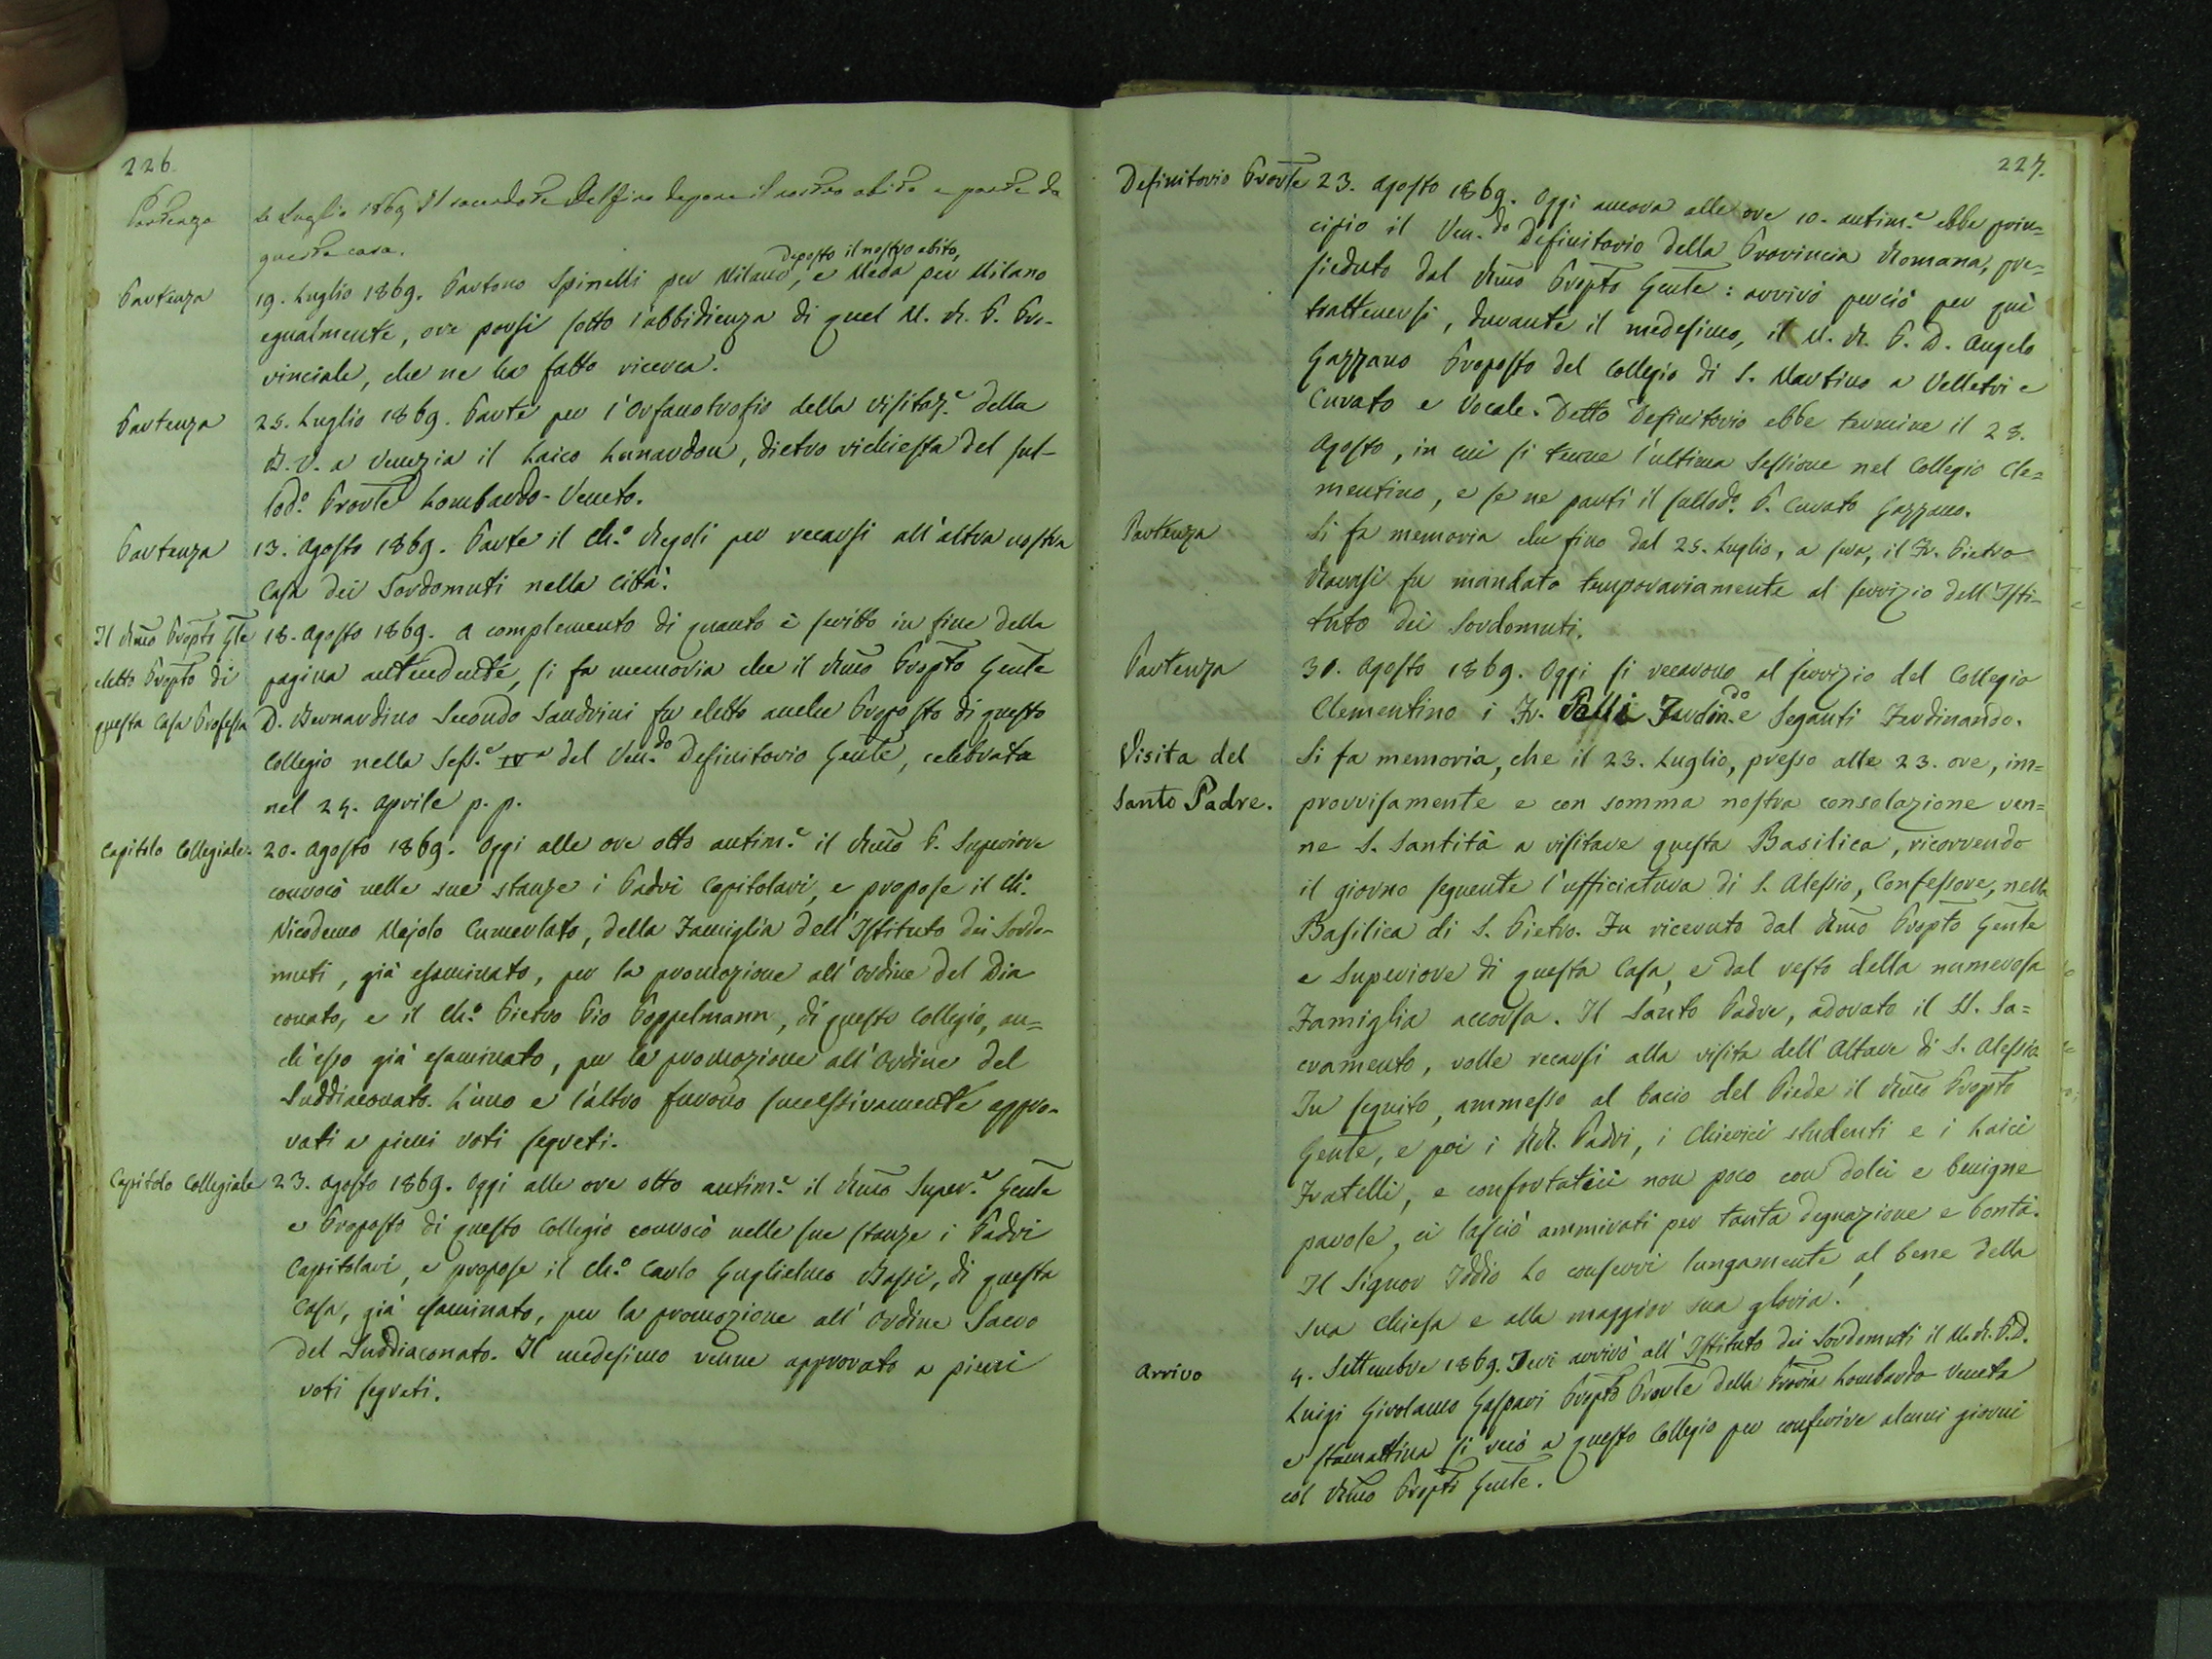 226.
Partenza
Luglio 1869 Il sacerdote Delfino depone il nostro abito e parte da
questa casa.
deposto il nostro abito,
Partenza
19. Luglio 1869. Partono Spinelli per Milano, e Meda per Milano
egualmente, ove porsi sotto l'abbidienza di quel M. R. P. Pro-
vinciale, che ne ha fatto ricerca.
Partenza
25. Luglio 1869. Parte per l'Orfanotrofio della Visitaz.e della
B. V. a Venezia il Laico Lunardon, dietro richiesta del sul-
lod.o Provle Lombardo-Veneto.
Partenza
13. Agosto 1869. Parte il Ch.o Regoli per recarsi all'altra nostra
Casa dei Sordomuti nella città.
Il Rmo Propto Gle
eletto Propto di
questa Casa Professa
18. Agosto 1869. A complemento di quanto è scritto in fine della
pagina antecedente, si fa memoria che il Rmo Propto Genle
D. Bernardino Secondo Sandrini fu eletto anche Proposto di questo
Collegio nella Sess.e IVa del Ven.do Definitorio Genle, celebrata
nel 24. Aprile p. p.
Capitolo Collegiale.
20. Agosto 1869. Oggi alle ore otto antim.e il Rmo P. Superiore
convocò nelle sue stanze i Padri Capitolari, e propose il Ch.o
Nicodemo Majolo Cumerlato, della Famiglia dell'Istituto dei Sordo-
muti, già esaminato, per la promozione all'Ordine del Dia
conato, e il Ch.o Pietro Pio Poppelmann, di questo Collegio, an=
ch'esso già esaminato, per la promozione all'Ordine del
Suddiaconato. L'uno e l'altro furono successivamente appro-
vati a pieni voti segreti.
Capitolo Collegiale
23. Agosto 1869. Oggi alle ore otto antim.e il Rmo Super.e Genle
e Proposto di questo Collegio convocò nelle sue stanze i Padri
Capitolari, e propose il Ch.o Carlo Guglielmo Bassi, di questa
Casa, già esaminato, per la promozione all'Ordine Sacro
del Suddiaconato. Il medesimo venne approvato a pieni
voti segreti.
227.
Definitorio Provle
23. Agosto 1869. Oggi ancora alle ore 10. antim.e ebbe prin=
cipio il Ven.do Definitorio della Provincia Romana, pre=
sieduto dal Rmo Propto Genle: arrivò perciò per qui
trattenersi, durante il medesimo, il M. R. P. D. Angelo
Gazzano Proposto del Collegio di S. Martino a Velletri e
Curato e Vocale. Detto Definitorio ebbe termine il 28.
Agosto, in cui si tenne l'ultima Sessione nel Collegio Cle=
mentino, e se ne partì il sullod.o P. Curato Gazzano.
Partenza
Si fa memoria che fino dal 25. Luglio, a sera, il Fr. Pietro
Ravasi fu mandato temporariamente al servizio dell'Isti-
tuto dei Sordomuti.
Partenza
30. Agosto 1869. Oggi si recarono al servizio del Collegio
Clementino i Fr. Ferdin.do e Seganti Ferdinando.
Visita del
Santo Padre.
Si fa memoria, che il 23. Luglio, presso alle 23. ore, im=
provvisamente e con somma nostra consolazione ven=
ne S. Santità a visitare questa Basilica, ricorrendo
il giorno seguente l'ufficiatura di S. Alessio, Confessore, nella
Basilica di S. Pietro. Fu ricevuto dal Rmo Propto Genle
e Superiore di questa Casa, e dal resto della numerosa
Famiglia accorsa. Il Santo Padre, adorato il SS. Sa=
cramento, volle recarsi alla visita dell'Altare di S. Alessio.
In seguito, ammesso al bacio del Piede il Rmo Propto
Genle, e poi i RR. Padri, i Chierici studenti e i Laici
Fratelli, e confortatici non poco con dolci e benigne
parole, ci lasciò ammirati per tanta degnazione e bontà.
Il Signor Iddio Lo conservi lungamente al bene della
sua Chiesa e alla maggior sua gloria!
Arrivo
4. Settembre 1869. Ieri arrivò all'Istituto dei Sordomuti il M. R. P. D.
Luigi Girolamo Gaspari Propto Provle della Provia Lombardo-Veneta
e stamattina si recò a questo Collegio per conferire alcuni giorni
col Rmo Propto Genle.